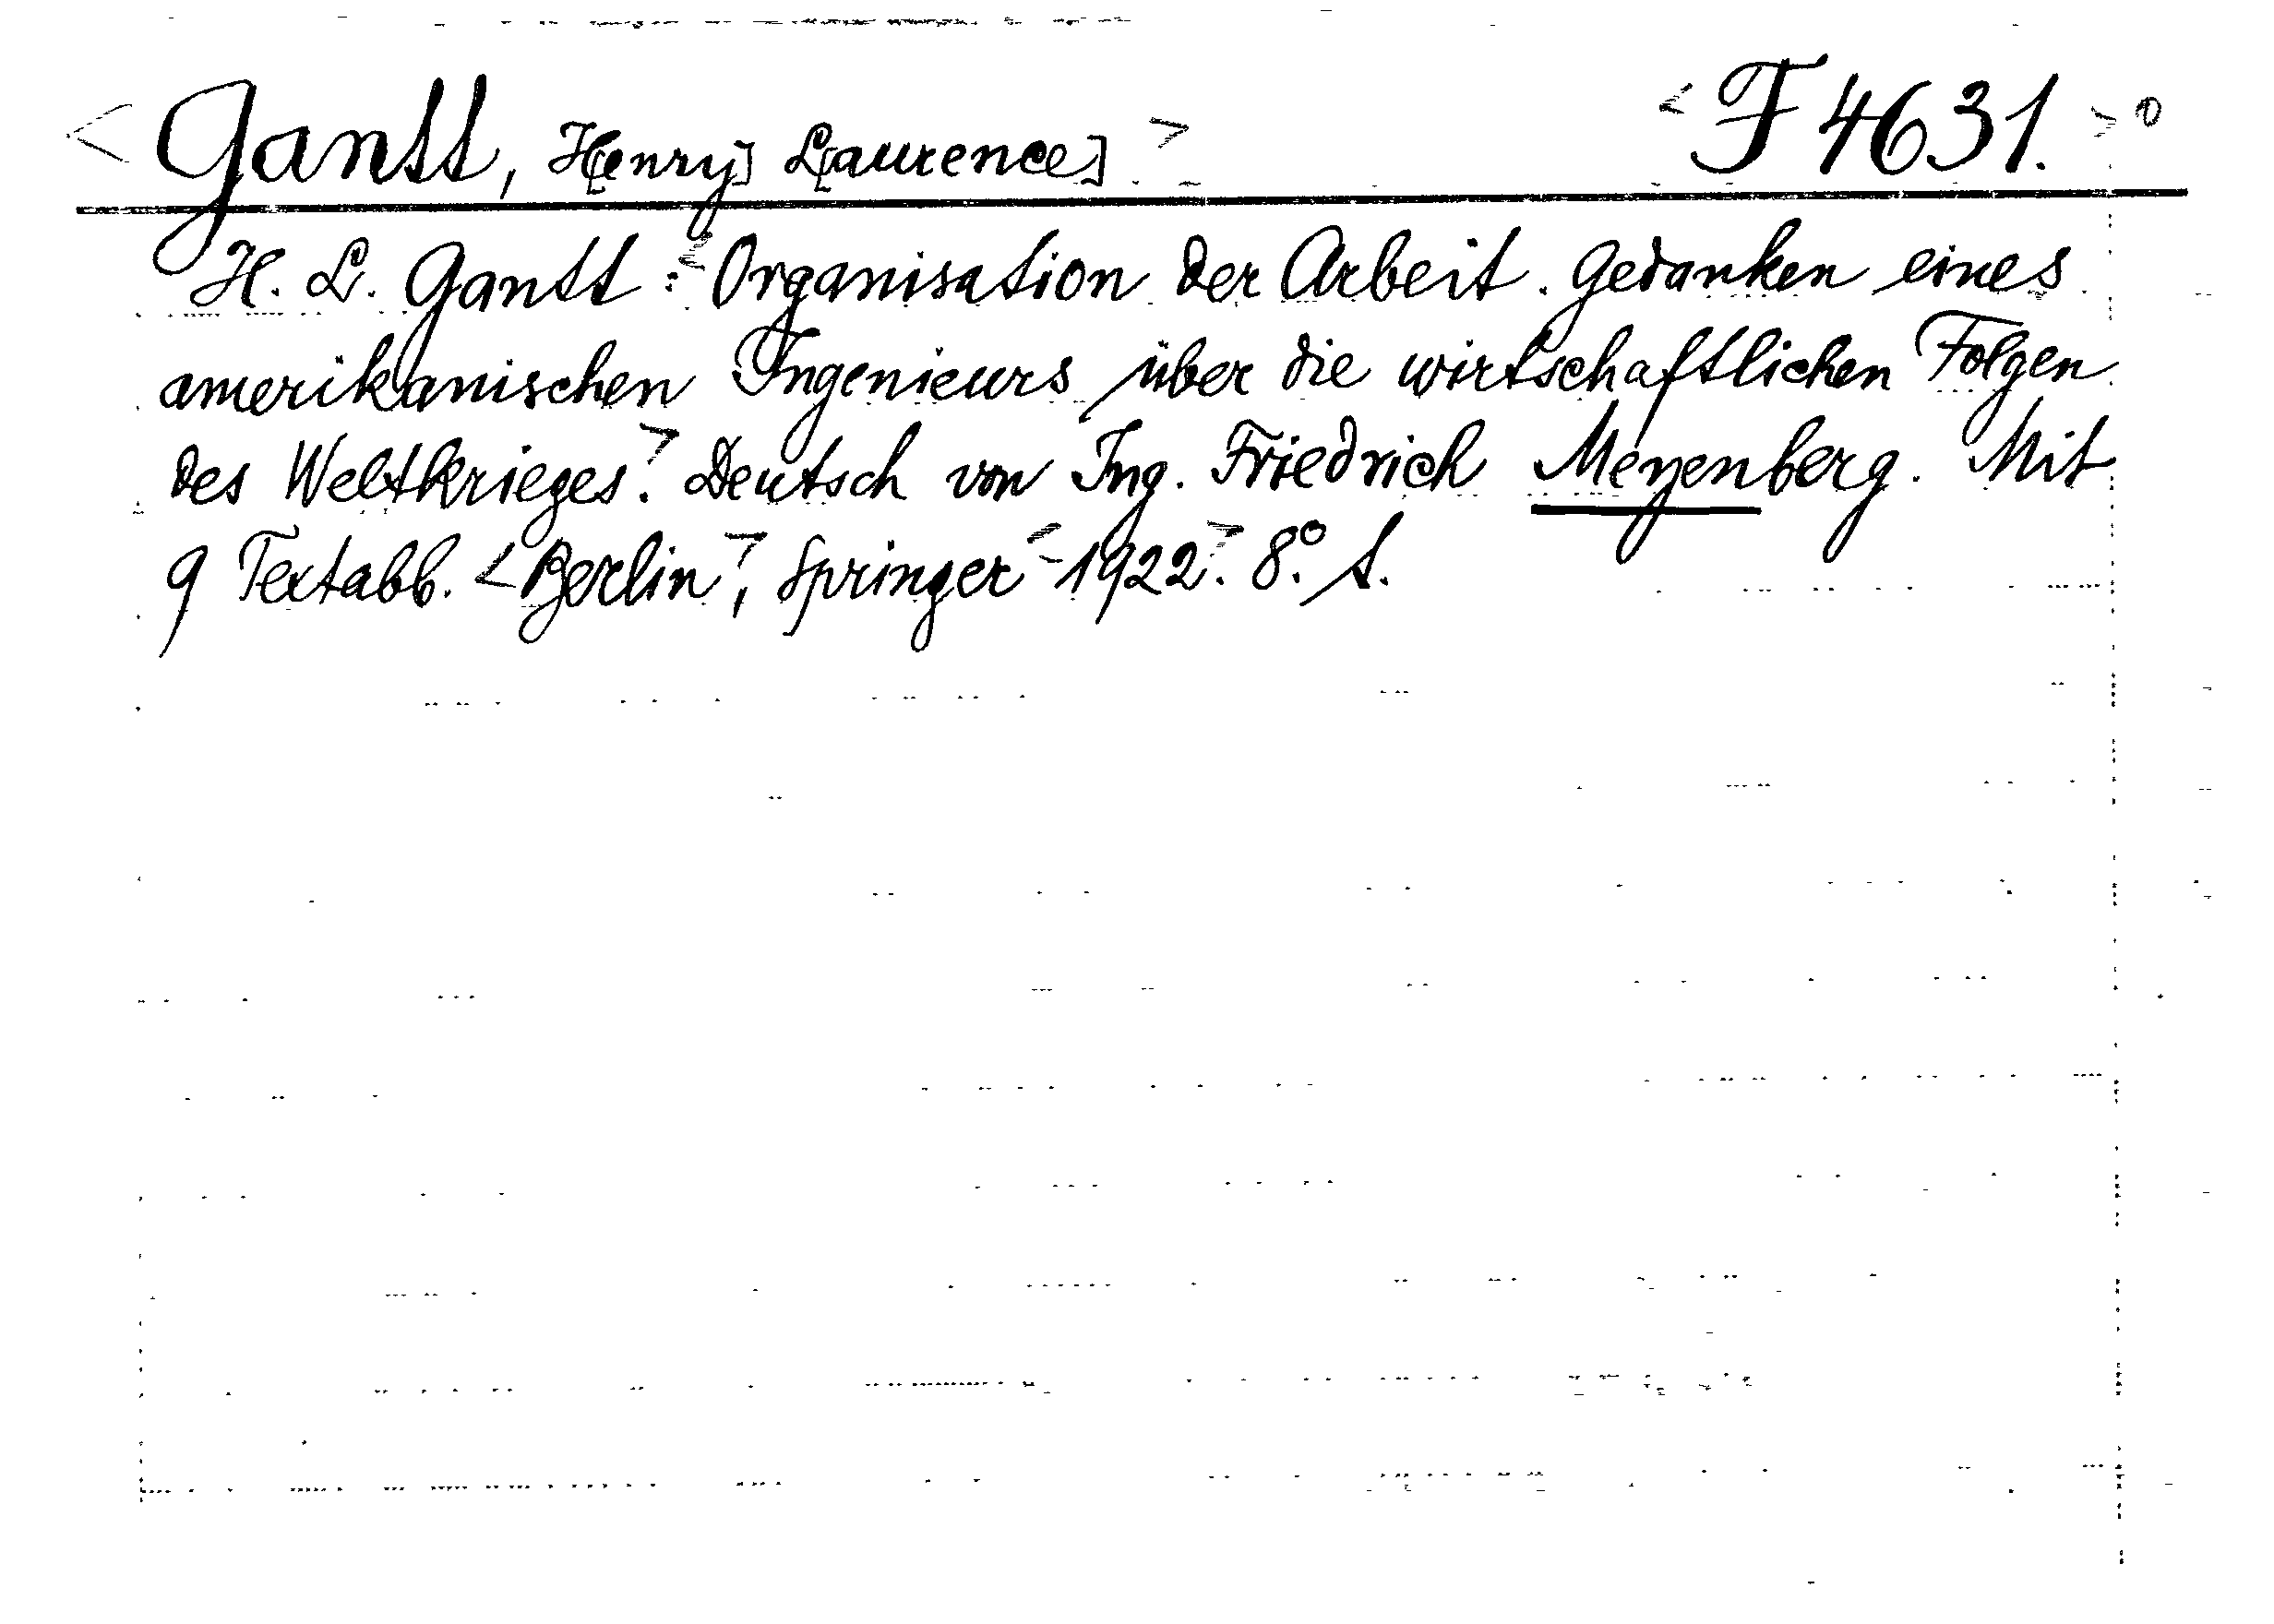 <Gantt, H[enry] L[aurence]> <F 4631.> 0
H. L. Gantt: <Organisation der Arbeit. Gedanken eines
amerikanischen Ingenieurs über die wirtschaftlichen Folgen
des Weltkrieges>. Deutsch von Ing. Friedrich Meyenberg. Mit
9 Textabb. <Berlin>, Springer <1922>. 8°. S.